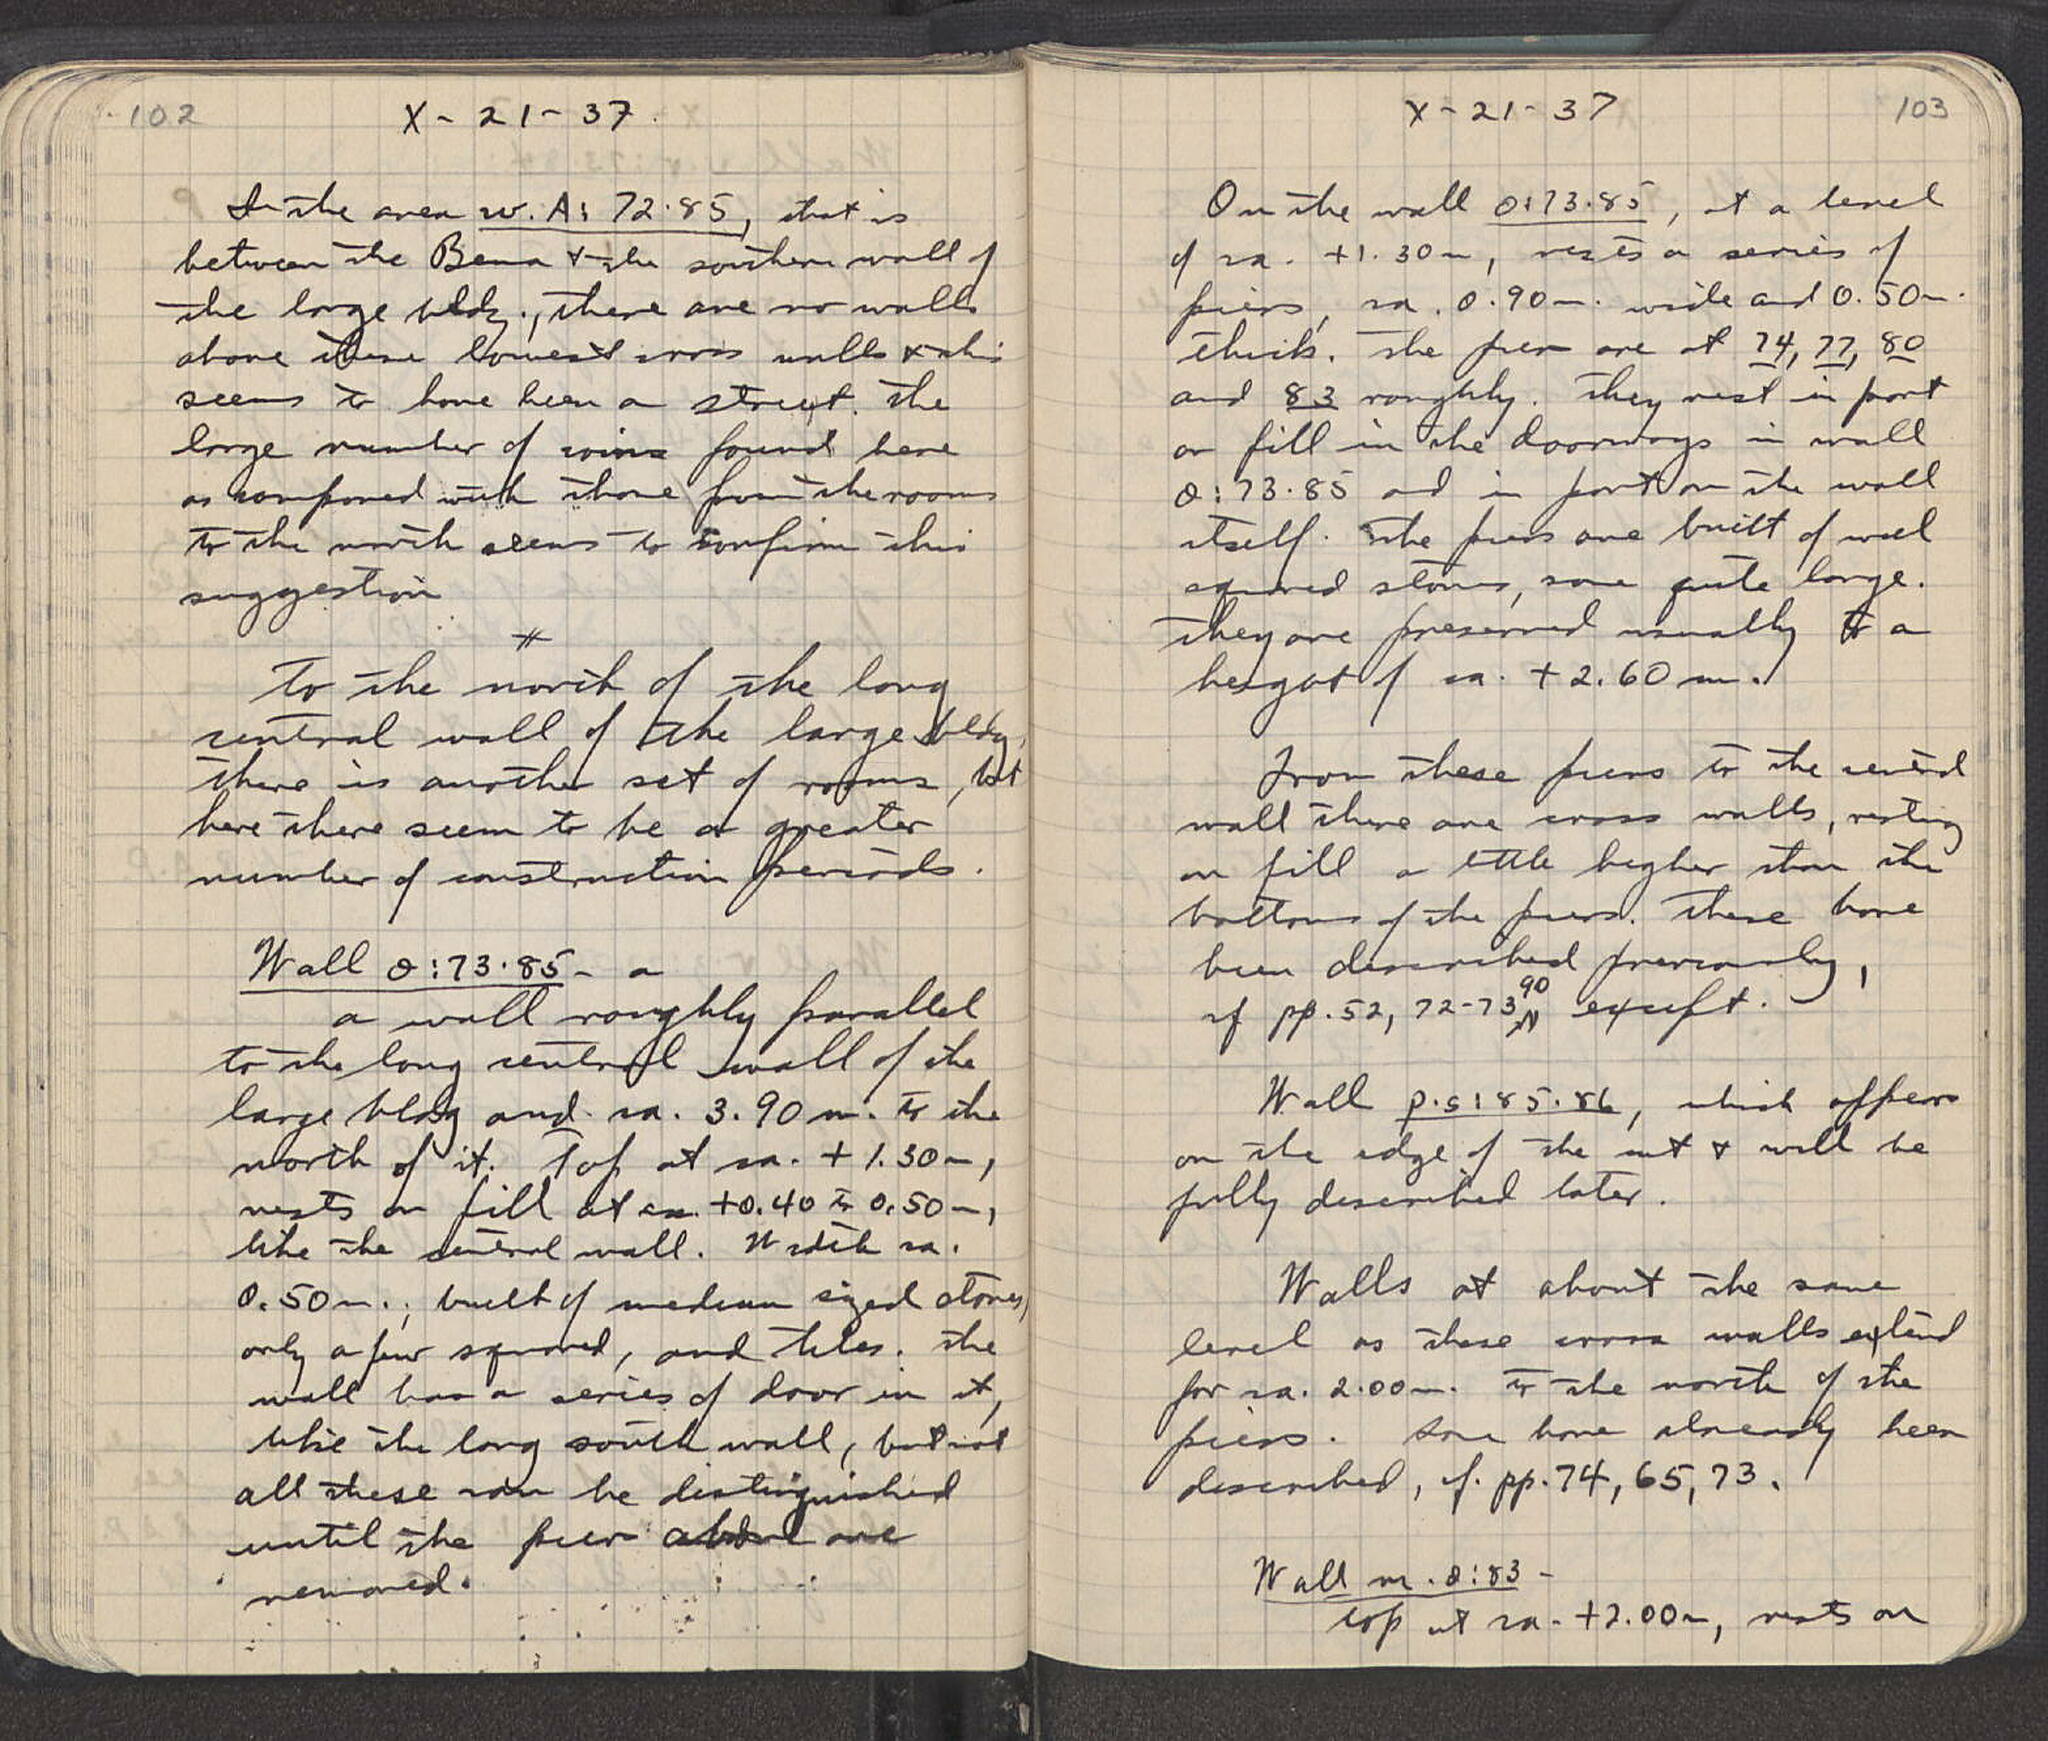 102
X - 21 - 37.
In the area w. A: 72.85, that is
between the Bema + the southern wall of
the large bldg., there are no walls
above these lowest cross walls + this
seems to have been a street. The
large number of coins found here
as compared with those from the rooms
to the north seems to confirm this
suggestion
#
To the north of the long
central wall of the large bldg,
there is another set of rooms, but
here there seem to be a greater
number of construction periods.
Wall o:73.85 - a
a wall roughly parallel
to the long central wall of the
large bldg and ca. 3.90 m. to the
north of it. Top at ca. +1.30 m,
rests on fill at ca. +0.40 to 0.50 m,
like the central wall. Width ca.
0.50 m.; built of medium sized stones,
only a few squared, and tiles. The
wall has a series of door in it,
like the long south wall, but not
all these can be distinguished
until the piers above are
removed.
X - 21 - 37
103
On the wall o:73.85, at a level
of ca. +1.30 m, rests a series of
piers, ca. 0.90 m. wide and 0.50 m.
thick. The piers are at 74, 77, 80
and 83 roughly. They rest in part
on fill in the doorways in wall
o:73.85 and in part on the wall
itself. The piers are built of well
squared stones, some quite large.
They are preserved usually to a
height of ca. +2.60 m.
From these piers to the central
wall there are cross walls, resting
on fill a little higher than the
bottoms of the piers. These have
been described previously,
cf pp. 52, 72-73, 90 except.
Wall p.s:85.86, which appears
on the edge of the cut + will be
fully described later.
Walls at about the same
level as these cross walls extend
for ca. 2.00 m. to the north of the
piers. Some have already been
described, cf. pp. 74, 65, 73.
Wall m.o:83 -
top at ca. +2.00 m, rests on